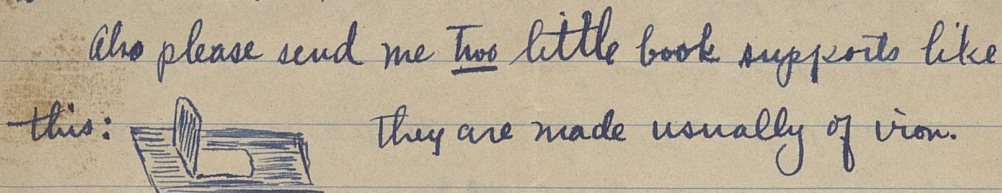 Also please send me two little book supports like
this: They are made usually of iron.